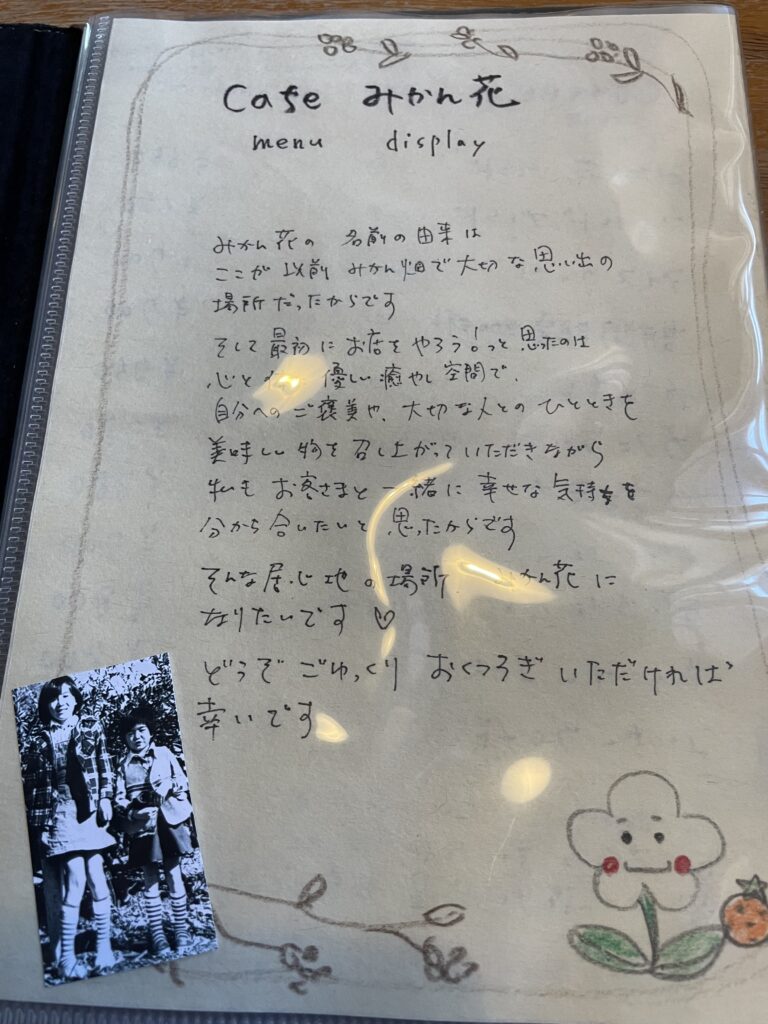 Cafe みかん花
menu display
みかん花の 名前の由来は
ここが 以前 みかん畑で大切な思い出の
場所だったからです
そして最初にお店をやろう!っと思ったのは
心と 優しい癒やし空間で、
自分へのご褒美や、大切な人とのひとときを
美味しい物を召し上がっていただきながら
私も お客さまと一緒に幸せな気持ちを
分から合いたいと思ったからです
そんな居心地の場所 かん花に
なりたいです♡
どうぞ ごゆっくり おくつろぎ いただければ
幸いです